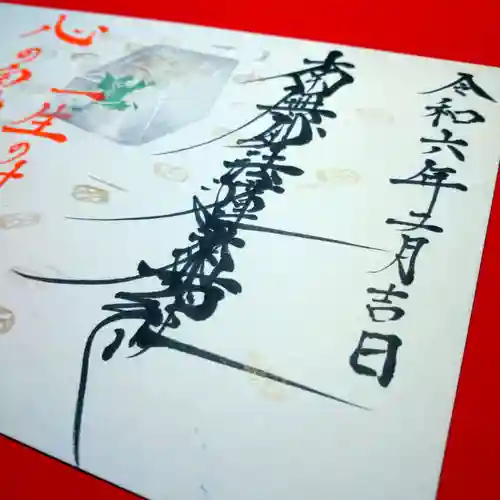 令和六年二月吉日
南無妙法蓮華経
一生の
心の